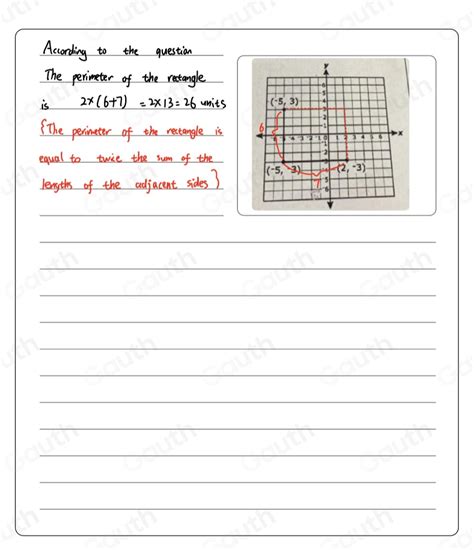 According to the question
The perimeter of the rectangle
is 2×(6+7) = 2×13 = 26 units
{The perimeter of the rectangle is
equal to twice the sum of the
lengths of the adjacent sides}
y
(-5, 3)
6
x
(-5, 3)
(2, -3)
7
Gauth